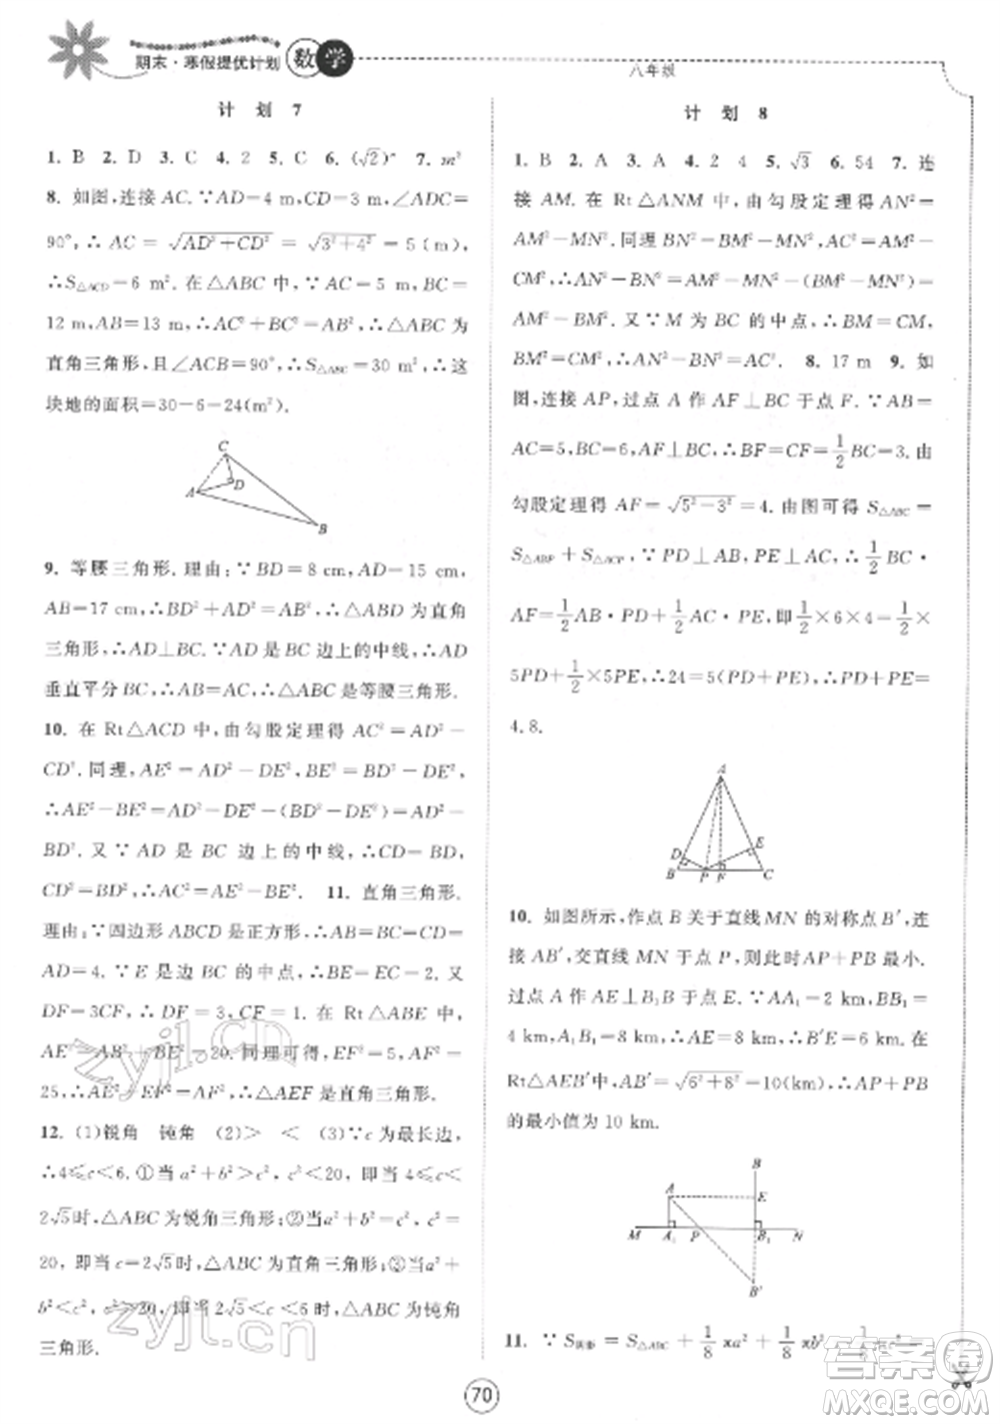 期末·寒假提优计划 数学
八年级
计 划 7
1. B 2. D 3. C 4. 2 5. C 6. (√2)ⁿ 7. m²
8. 如图,连接 AC. ∵AD=4 m,CD=3 m,∠ADC=
90°,∴AC=√(AD²+CD²)=√(3²+4²)=5(m),
∴S△ACD=6 m². 在△ABC 中,∵AC=5 m,BC=
12 m,AB=13 m,∴AC²+BC²=AB²,∴△ABC 为
直角三角形,且∠ACB=90°,∴S△ABC=30 m²,∴这
块地的面积=30-6=24(m²).
C
D
A
B
9. 等腰三角形. 理由:∵BD=8 cm,AD=15 cm,
AB=17 cm,∴BD²+AD²=AB²,∴△ABD 为直角
三角形,∴AD⊥BC. ∵AD 是 BC 边上的中线,∴AD
垂直平分 BC,∴AB=AC,∴△ABC 是等腰三角形.
10. 在 Rt△ACD 中,由勾股定理得 AC²=AD²-
CD². 同理,AE²=AD²-DE²,DE²=BD²-BE²,
∴AE²-BE²=AD²-DE²-(BD²-DE²)=AD²-
BD². 又∵AD 是 BC 边上的中线,∴CD=BD,∴
CD²=BD²,∴AC²=AE²-BE². 11. 直角三角形.
理由:∵四边形 ABCD 是正方形,∴AB=BC=CD=
AD=4. ∵E 是 BC 的中点,∴BE=EC=2. 又
∵DF=3CF,∴DF=3,CF=1. 在 Rt△ABE 中,
AE²=AB²+BE²=20. 同理可得,EF²=5,AF²=
25,∴AE²+EF²=AF²,∴△AEF 是直角三角形.
12. (1)锐角 钝角 (2)> < (3)∵c 为最长边,
∴4≤c<6. ①当 a²+b²>c²,c²<20,即当 4≤c<
2√5时,△ABC 为锐角三角形;②当 a²+b²=c²,c²=
20,即当 c=2√5时,△ABC 为直角三角形;③当 a²+
b²<c²,c²>20,即当 2√5<c<6 时,△ABC 为钝角
三角形.
计 划 8
1. B 2. A 3. A 4. 2 4 5. √3 6. 54 7. 连
接 AM. 在 Rt△ANM 中,由勾股定理得 AN²=
AM²-MN². 同理 BN²=BM²-MN²,AC²=AM²+
CM²,∴AN²-BN²=AM²-MN²-BM²+MN²=
AM²-BM². 又∵M 为 BC 的中点,∴BM=CM,∴
BM²=CM²,∴AN²-BN²=AC². 8. 17 m 9. 如
图,连接 AP,过点 A 作 AF⊥BC 于点 F. ∵AB=
AC=5,BC=6,AF⊥BC,∴BF=CF=1/2BC=3. 由
勾股定理得 AF=√(5²-3²)=4. 由图可得 S△ABC=
S△ABP+S△ACP. ∵PD⊥AB,PE⊥AC,∴1/2BC·
AF=1/2AB·PD+1/2AC·PE,即1/2×6×4=1/2×
5PD+1/2×5PE,∴24=5(PD+PE),∴PD+PE=
4.8.
A
D
E
B P F C
10. 如图所示,作点 B 关于直线 MN 的对称点 B′,连
接 AB′,交直线 MN 于点 P,则此时 AP+PB 最小.
过点 A 作 AE⊥B₁B 于点 E. ∵AA₁=2 km,BB₁=
4 km,A₁B₁=8 km,∴AE=8 km,∴B′E=6 km. 在
Rt△AEB′中,AB′=√(6²+8²)=10(km),∴AP+PB
的最小值为 10 km.
B
A
E
M A₁ P B₁ N
B′
11. ∵S阴影=S△ABC+1/8πa²+1/8πb²-
70
zyjl.cn
zyjl.cn
答案圈
MXQE.COM